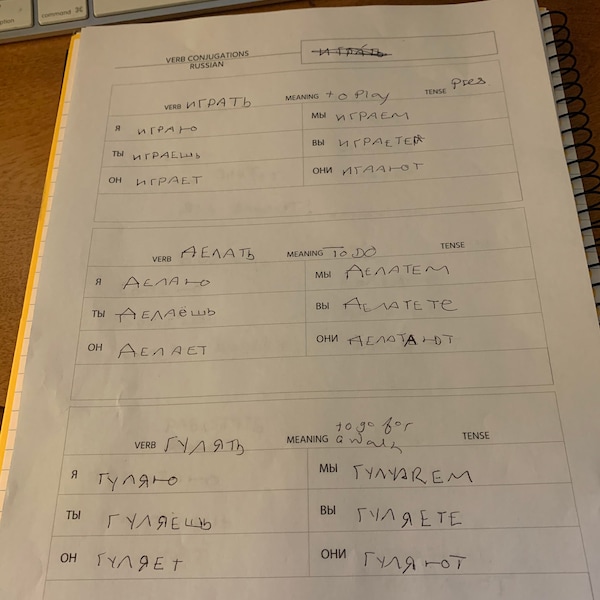 option
command ⌘
VERB CONJUGATIONS
RUSSIAN
ИГРАТЬ
VERB ИГРАТЬ MEANING to Play TENSE Pres
Я ИГРАЮ МЫ ИГРАЕМ
ТЫ ИГРАЕШЬ ВЫ ИГРАЕТЕ
ОН ИГРАЕТ ОНИ ИГААЮТ
VERB ДЕЛАТЬ MEANING TO DO TENSE
Я ДЕЛАЮ МЫ ДЕЛАТЕМ
ТЫ ДЕЛАЁШЬ ВЫ ДЕЛАТЕТЕ
ОН ДЕЛАЕТ ОНИ ДЕЛАТАЮТ
VERB ГУЛЯТЬ MEANING to go for a walk TENSE
Я ГУЛЯЮ МЫ
ТЫ ГУЛЯЁШЬ ВЫ ГУЛЯЕТЕ
ОН ГУЛЯЕТ ОНИ ГУЛЯЮТ